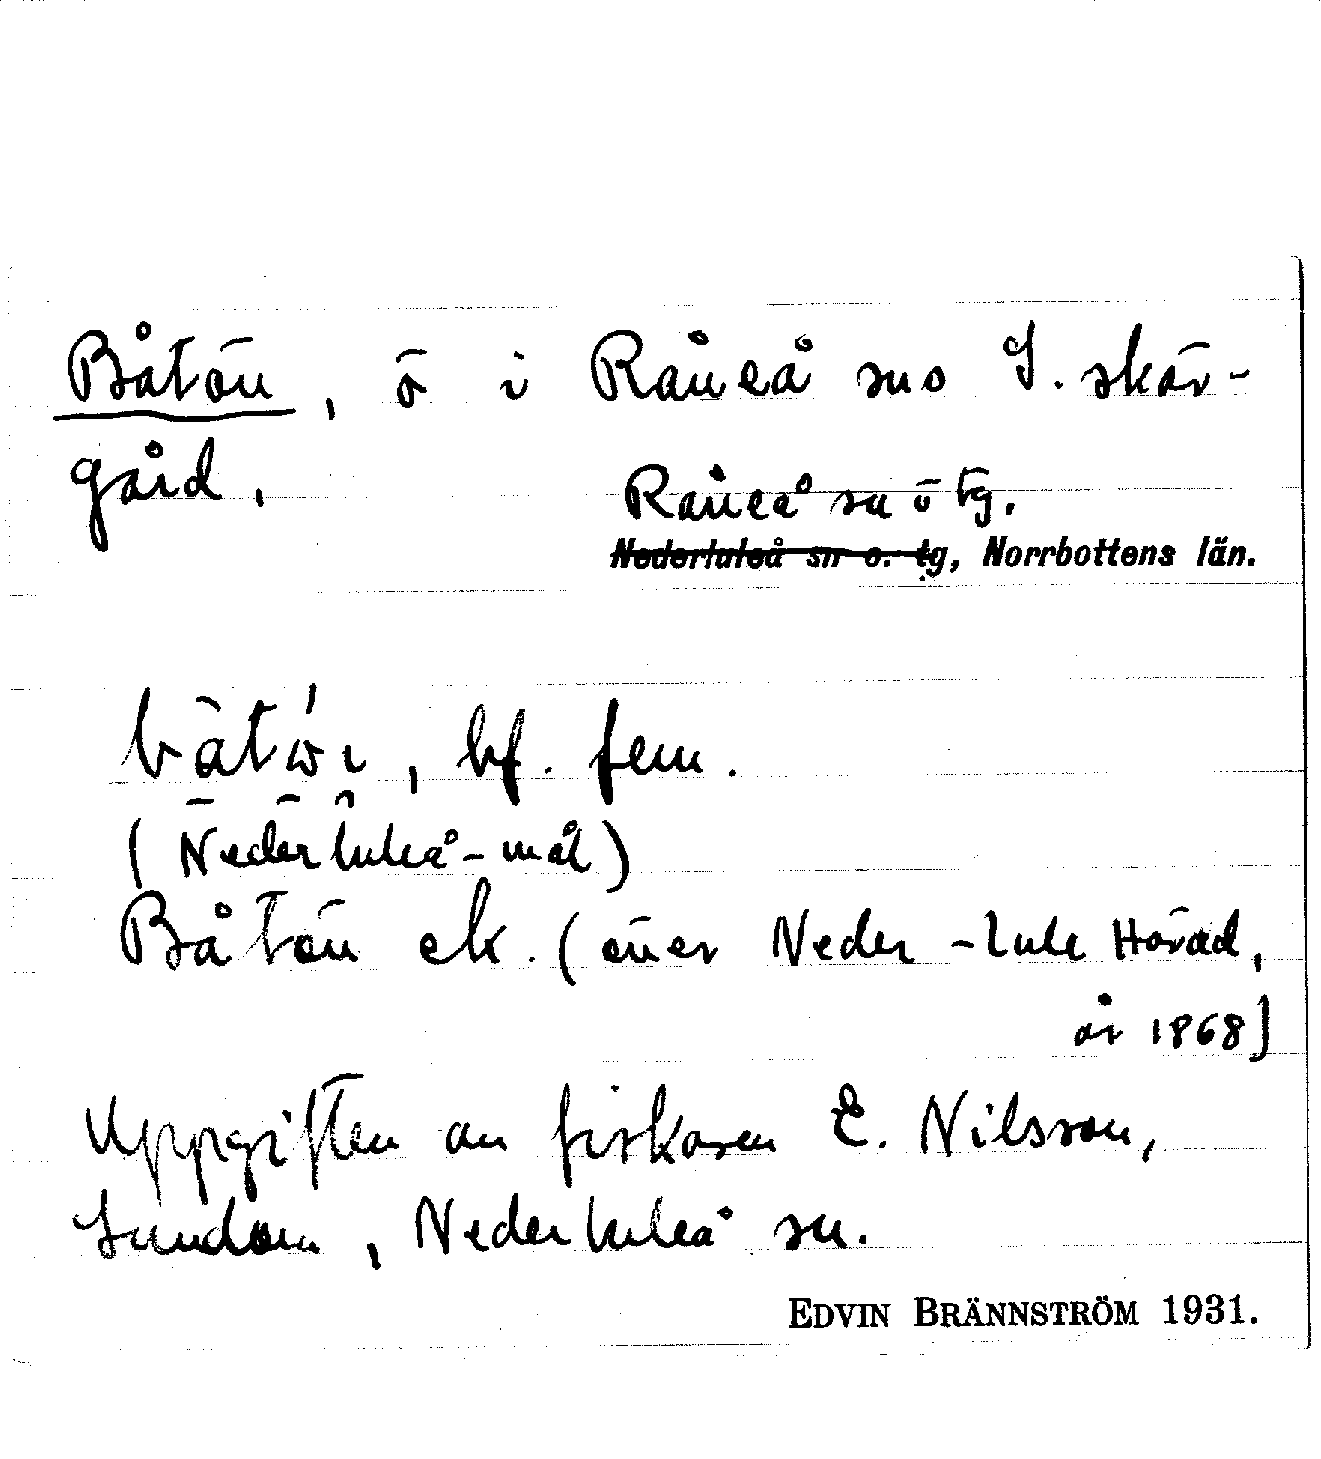 Båtön, ö i Råneå sns S. skär-
gård.
Råneå sn o tg.
Nederluleå sn o. tg, Norrbottens län.
bf. fem.
(Nederluleå-mål)
Båtön ek. (över Neder-Lule Härad,
år 1868]
Uppgiften av fiskaren E. Nilsson,
Sundom, Nederluleå sn.
EDVIN BRÄNNSTRÖM 1931.